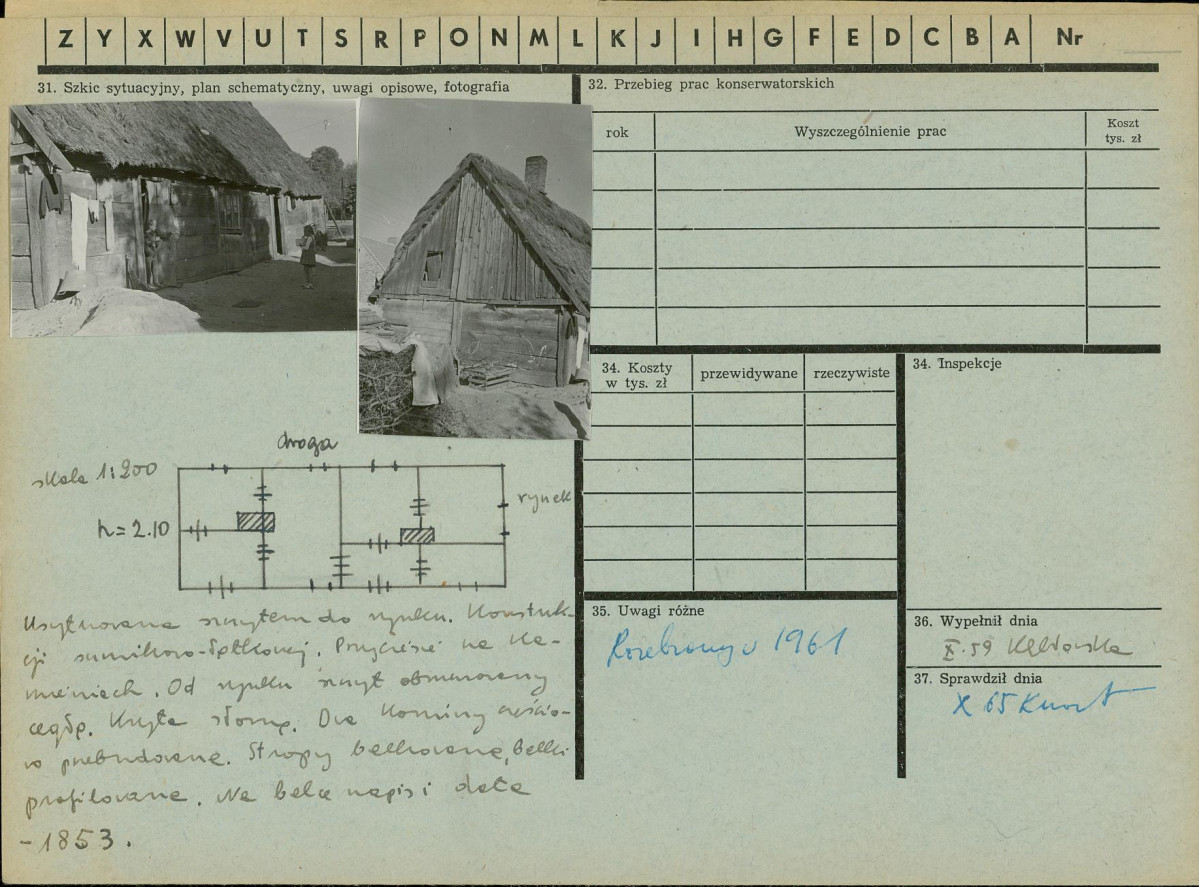 Z Y X W V U T S R P O N M L K J I H G F E D C B A Nr
31. Szkic sytuacyjny, plan schematyczny, uwagi opisowe, fotografia
droga
skala 1:200
rynek
h = 2.10
Usytuowana szczytem do rynku. Konstruk-
cji sumikowo-łątkowej. Przyciesie na ka-
mieniach. Od rynku szczyt obmurowany
cegłą. Kryta słomą. Dwa kominy częścio-
wo przebudowane. Stropy belkowane, belki
profilowane. Na belce napis i data
- 1853.
32. Przebieg prac konserwatorskich
rok
Wyszczególnienie prac
Koszt
tys. zł
34. Koszty
w tys. zł
przewidywane
rzeczywiste
34. Inspekcje
35. Uwagi różne
Rozebrany w 1961
36. Wypełnił dnia
X. 59
37. Sprawdził dnia
X 65